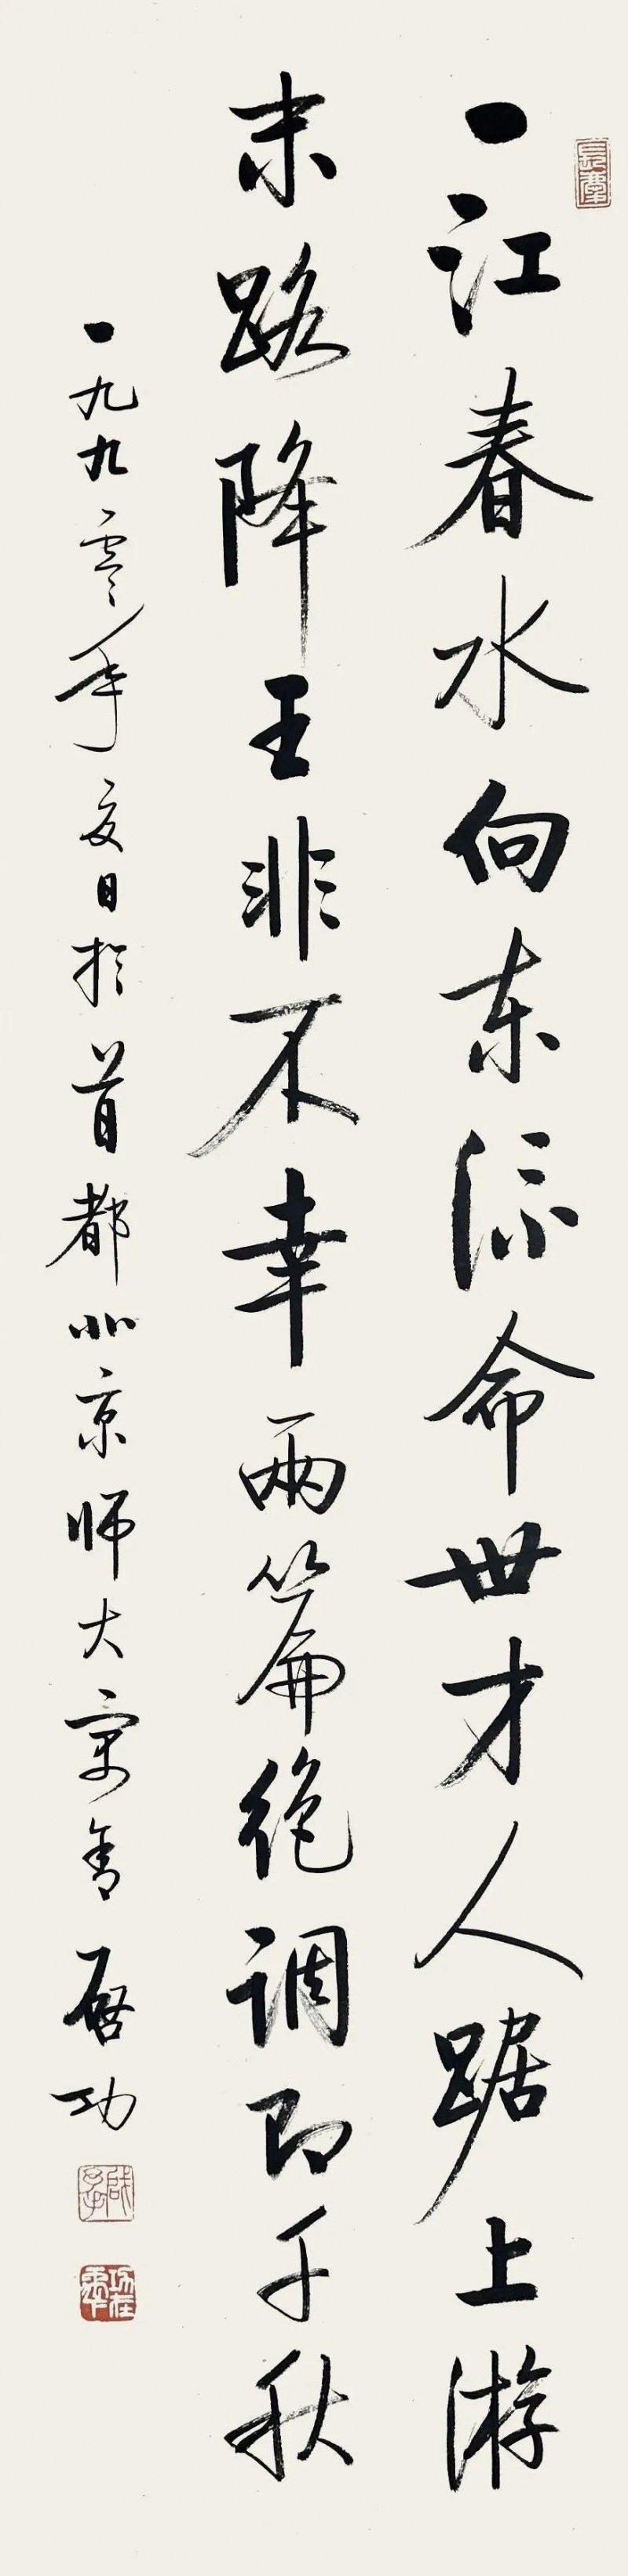 一江春水向东流命世才人踞上游
末路降王非不幸两篇绝调即千秋
一九九零年夏日於首都北京师大寓舍启功